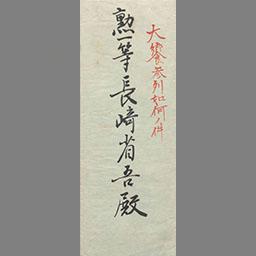 大饗参列如何ノ件
勲一等長崎省吾殿